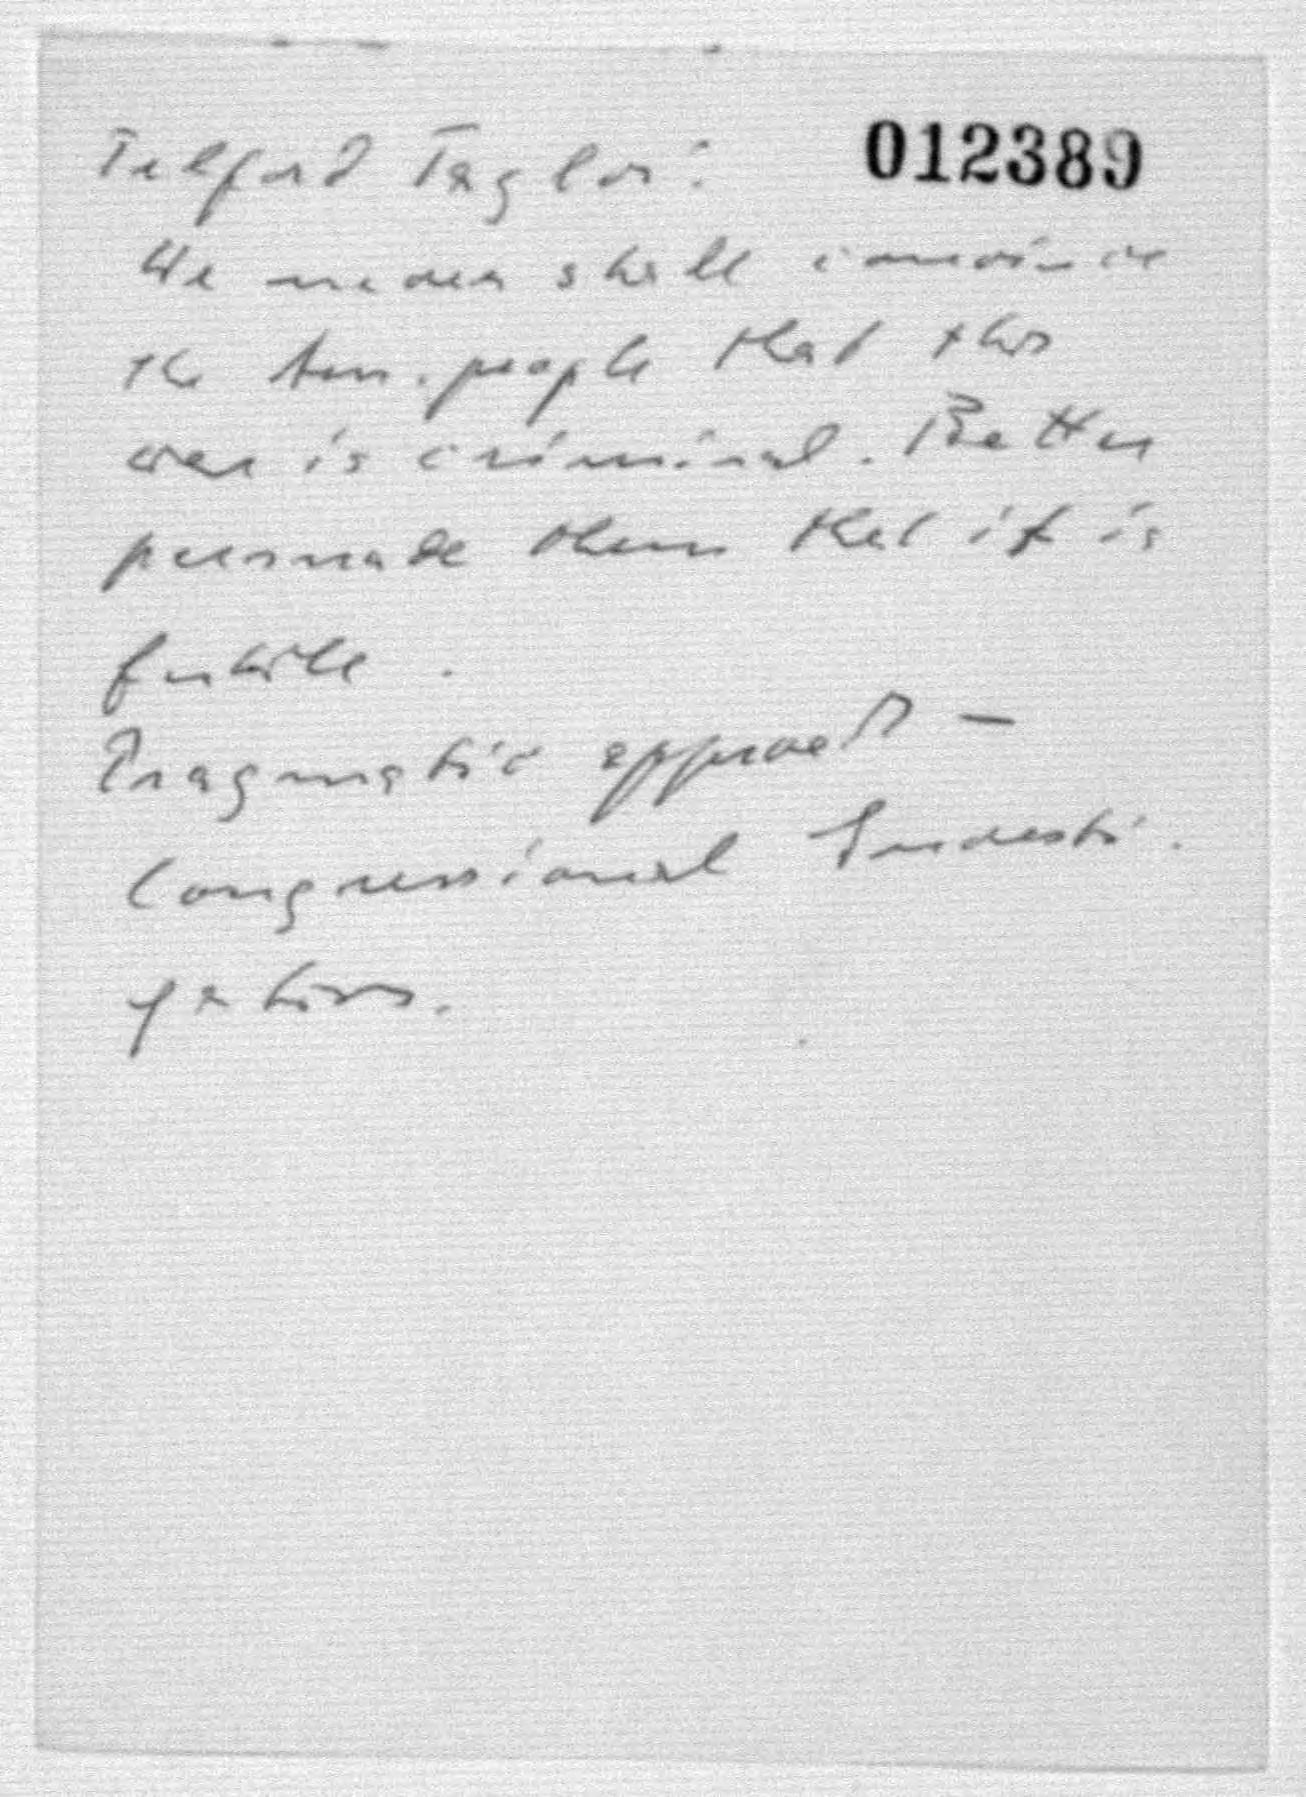 Telford Taylor: 012389
We never shall convince
the Am. people that this
war is criminal. Better
persuade them that it is
futile.
Pragmatic approach —
Congressional Investi-
gations.